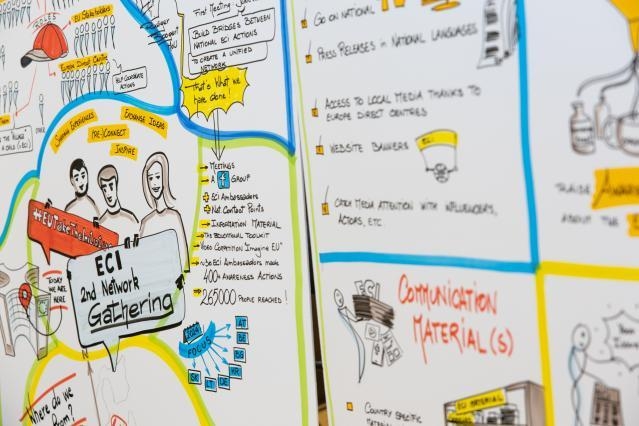 ROLES
EU Stakeholders
EUROPE DIRECT CENTRE
HELP COORDINATE
ACTIONS
SHARING EXPERIENCES
EXCHANGE IDEAS
(RE-)CONNECT
INSPIRE
#EUTakeTheInitiative
ECI
2nd NETWORK
Gathering
TODAY
WE ARE
HERE
Where do we
FIRST MEETING
BUILD BRIDGES BETWEEN
NATIONAL ECI ACTIONS
TO CREATE A UNIFIED
NETWORK
that's What we
have done!
MEETINGS
A f GROUP
ECI AMBASSADORS
Nat. Contact Points
INFORMATION MATERIAL
THE EDUCATIONAL TOOLKIT
VIDEO COMPETITION "IMAGINE EU"
ECI AMBASSADORS made
400+ AWARENESS ACTIONS
265000 PEOPLE REACHED!
2024
FOCUS
AT
BE
BG
HR
DE
LT
SK
GO ON NATIONAL TV
PRESS RELEASES IN NATIONAL LANGUAGES
ACCESS TO LOCAL MEDIA THANKS TO
EUROPE DIRECT CENTRES
WEBSITE BANNERS
ECI
CATCH MEDIA ATTENTION WITH INFLUENCERS,
ACTORS, ETC.
ECI
COMMUNICATION
MATERIAL(S)
COUNTRY SPECIFIC
ECI MATERIAL
RAISE
ABOUT THE